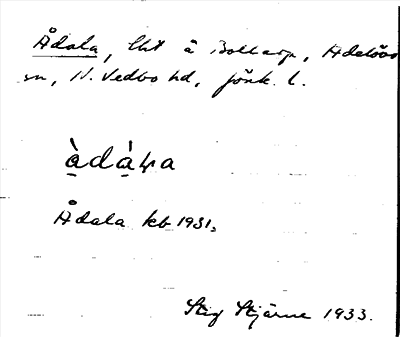 Ådala, lht å Bollarp, Adelövs
sn, N. Vedbo hd, Jönk. l.
àdàꞎa
Ådala kb 1931.
Stig Stjärne 1933.